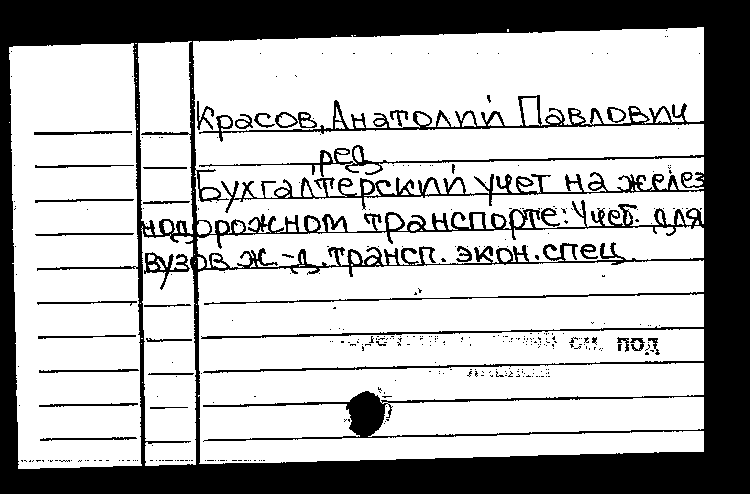 Красов, Анатолий Павлович
ред.
Бухгалтерский учет на желез
нодорожном транспорте: Учеб. для
вузов ж.-д. трансп. экон. спец.
см. под